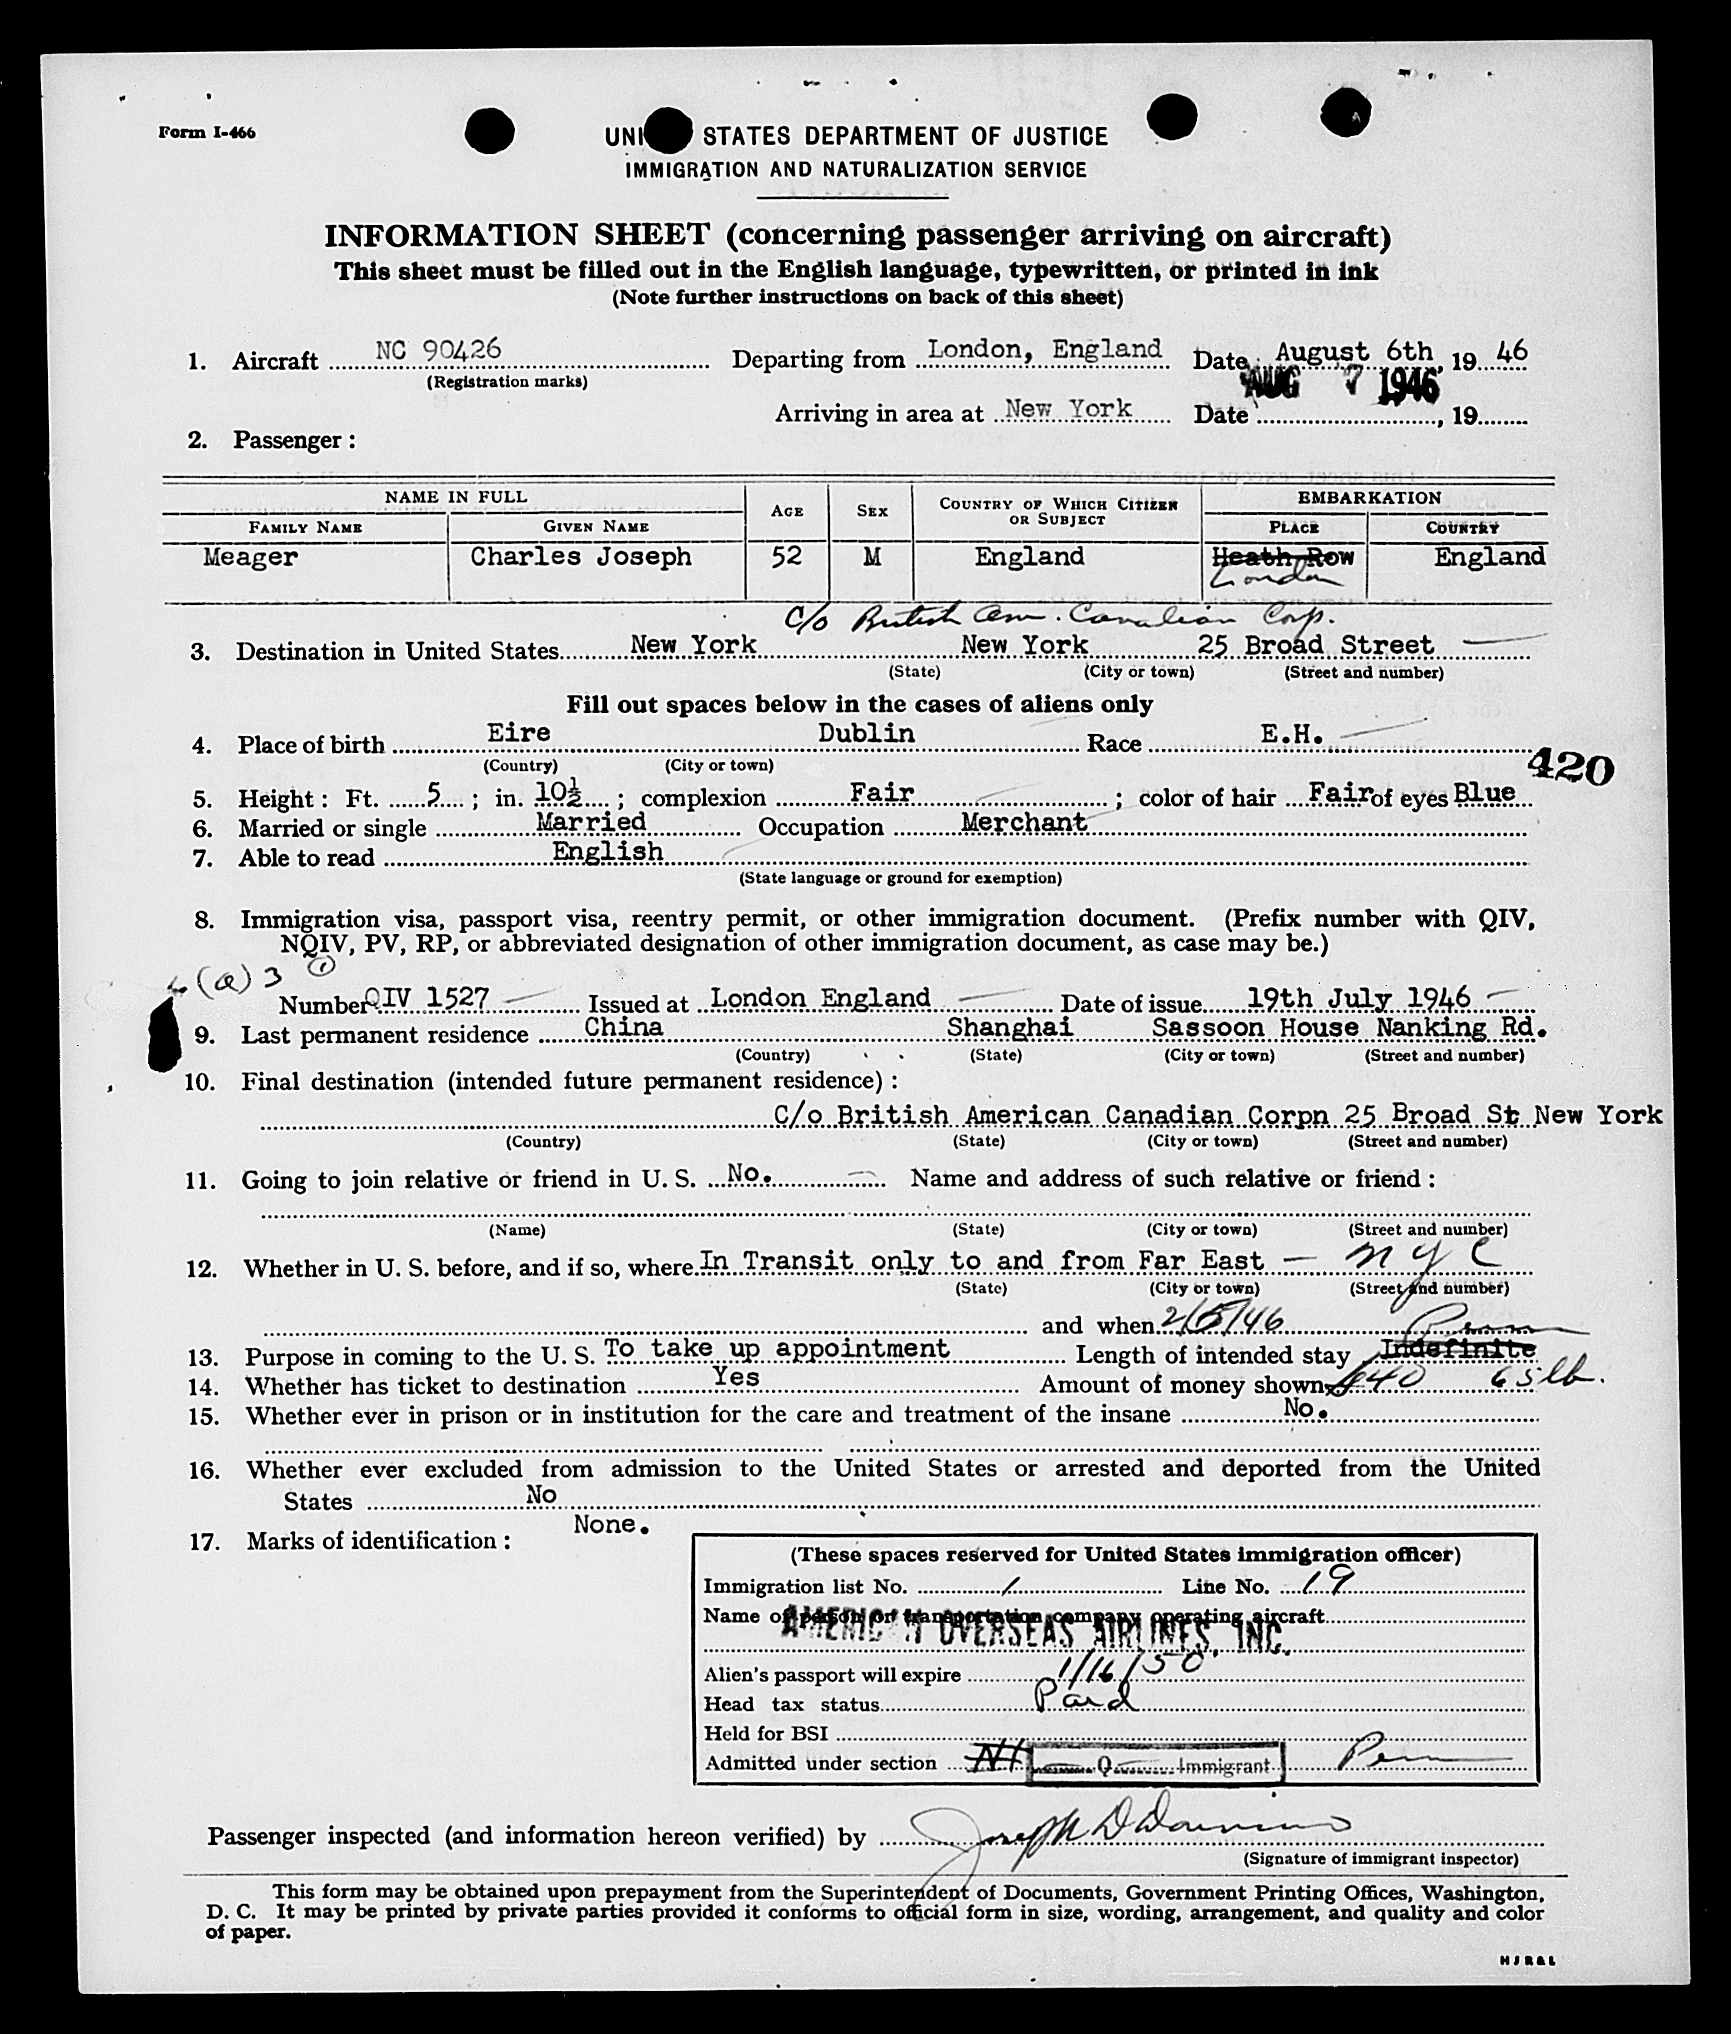 Form I-466
UNI STATES DEPARTMENT OF JUSTICE
IMMIGRATION AND NATURALIZATION SERVICE
INFORMATION SHEET (concerning passenger arriving on aircraft)
This sheet must be filled out in the English language, typewritten, or printed in ink
(Note further instructions on back of this sheet)
1. Aircraft NC 90426 Departing from London, England Date August 6th, 19 46
(Registration marks)
AUG 7 1946
Arriving in area at New York Date , 19
2. Passenger :
NAME IN FULL AGE SEX COUNTRY OF WHICH CITIZEN OR SUBJECT EMBARKATION
FAMILY NAME GIVEN NAME PLACE COUNTRY
Meager Charles Joseph 52 M England Heath Row England
London
C/o British Am. Canadian Corp.
3. Destination in United States New York New York 25 Broad Street
(State) (City or town) (Street and number)
Fill out spaces below in the cases of aliens only
4. Place of birth Eire Dublin Race E.H.
(Country) (City or town)
420
5. Height : Ft. 5 ; in. 10½ ; complexion Fair ; color of hair Fair of eyes Blue
6. Married or single Married Occupation Merchant
7. Able to read English
(State language or ground for exemption)
8. Immigration visa, passport visa, reentry permit, or other immigration document. (Prefix number with QIV,
NQIV, PV, RP, or abbreviated designation of other immigration document, as case may be.)
(a) 3 1
Number QIV 1527 Issued at London England Date of issue 19th July 1946
9. Last permanent residence China Shanghai Sassoon House Nanking Rd.
(Country) (State) (City or town) (Street and number)
10. Final destination (intended future permanent residence) :
C/o British American Canadian Corpn 25 Broad St New York
(Country) (State) (City or town) (Street and number)
11. Going to join relative or friend in U. S. No. Name and address of such relative or friend :
(Name) (State) (City or town) (Street and number)
12. Whether in U. S. before, and if so, where In Transit only to and from Far East — N Y C
(State) (City or town) (Street and number)
and when 2/5/46 Perm
13. Purpose in coming to the U. S. To take up appointment Length of intended stay Indefinite
14. Whether has ticket to destination Yes Amount of money shown $40 65 lb.
15. Whether ever in prison or in institution for the care and treatment of the insane No.
16. Whether ever excluded from admission to the United States or arrested and deported from the United
States No
17. Marks of identification : None.
(These spaces reserved for United States immigration officer)
Immigration list No. 1 Line No. 19
Name of person or transportation company operating aircraft
AMERICAN OVERSEAS AIRLINES, INC.
Alien's passport will expire 1/16/50
Head tax status Paid
Held for BSI
Admitted under section Q Immigrant Perm
Passenger inspected (and information hereon verified) by Joseph D
(Signature of immigrant inspector)
This form may be obtained upon prepayment from the Superintendent of Documents, Government Printing Offices, Washington,
D. C. It may be printed by private parties provided it conforms to official form in size, wording, arrangement, and quality and color
of paper.
HJR&L